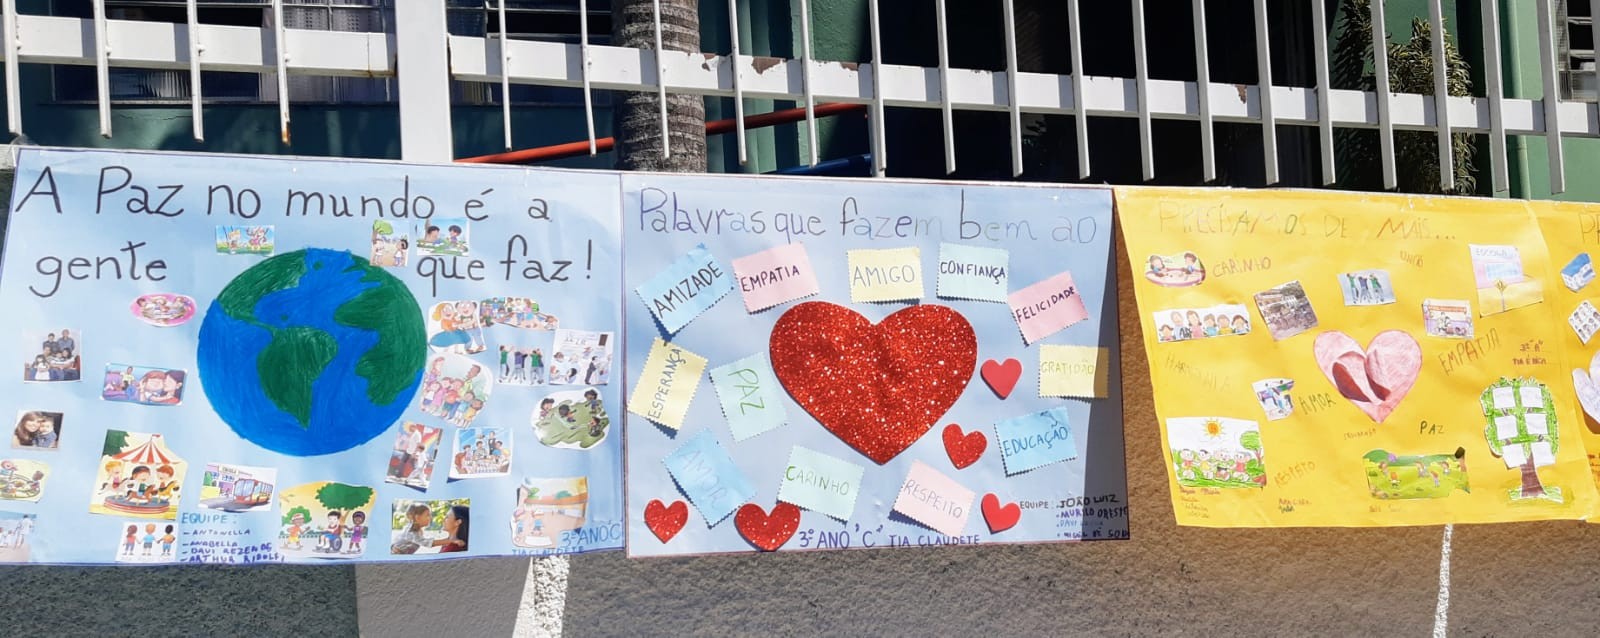 A Paz no mundo é a
gente que faz!
EQUIPE:
- ANTONELLA
- ANABELLA
- DAVI REZENDE
- ARTHUR RIDOLFI
3º ANO "C"
TIA CLAUDETE
Palavras que fazem bem ao
AMIZADE
EMPATIA
AMIGO
CONFIANÇA
FELICIDADE
ESPERANÇA
PAZ
GRATIDÃO
AMOR
CARINHO
RESPEITO
EDUCAÇÃO
EQUIPE: JOÃO LUIZ
- MURILO
DAVI
3º ANO "C" TIA CLAUDETE
PRECISAMOS DE MAIS...
CARINHO
ESCOLA
HARMONIA
EMPATIA
3º "A"
TIA ÉRICA
AMOR
PAZ
RESPEITO